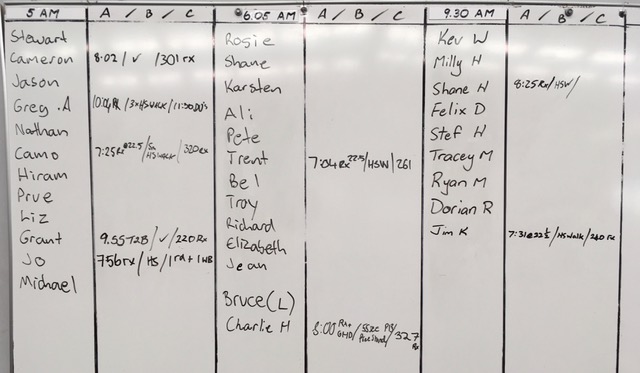 5 AM A / B / C
Stewart
Cameron 8:02 / ✓ / 301 rx
Jason
Greg .A
Nathan
Camo 7:25 Rx @22.5 / 5m HSWALK / 320 RX
Hiram
Prue
Liz
Grant 9.55 T2B / ✓ / 220 Rx
Jo 756 rx / HS / 1 rd + 1 WB
Michael
6.05 AM A / B / C
Rosie
Shane
Karsten
Ali
Pete
Trent 7:04 Rx 22.5 / HSW / 261
Bel
Troy
Richard
Elizabeth
Jean
Bruce (L)
Charlie H 8:00 Rx+ GHD / 55sec / 327 Rx
9.30 AM A / B / C
Kev W
Milly H
Shane H 8:25 Rx / HSW /
Felix D
Stef H
Tracey M
Ryan M
Dorian R
Jim K 7:31 @ 22½ / HSWalk / 240 rx